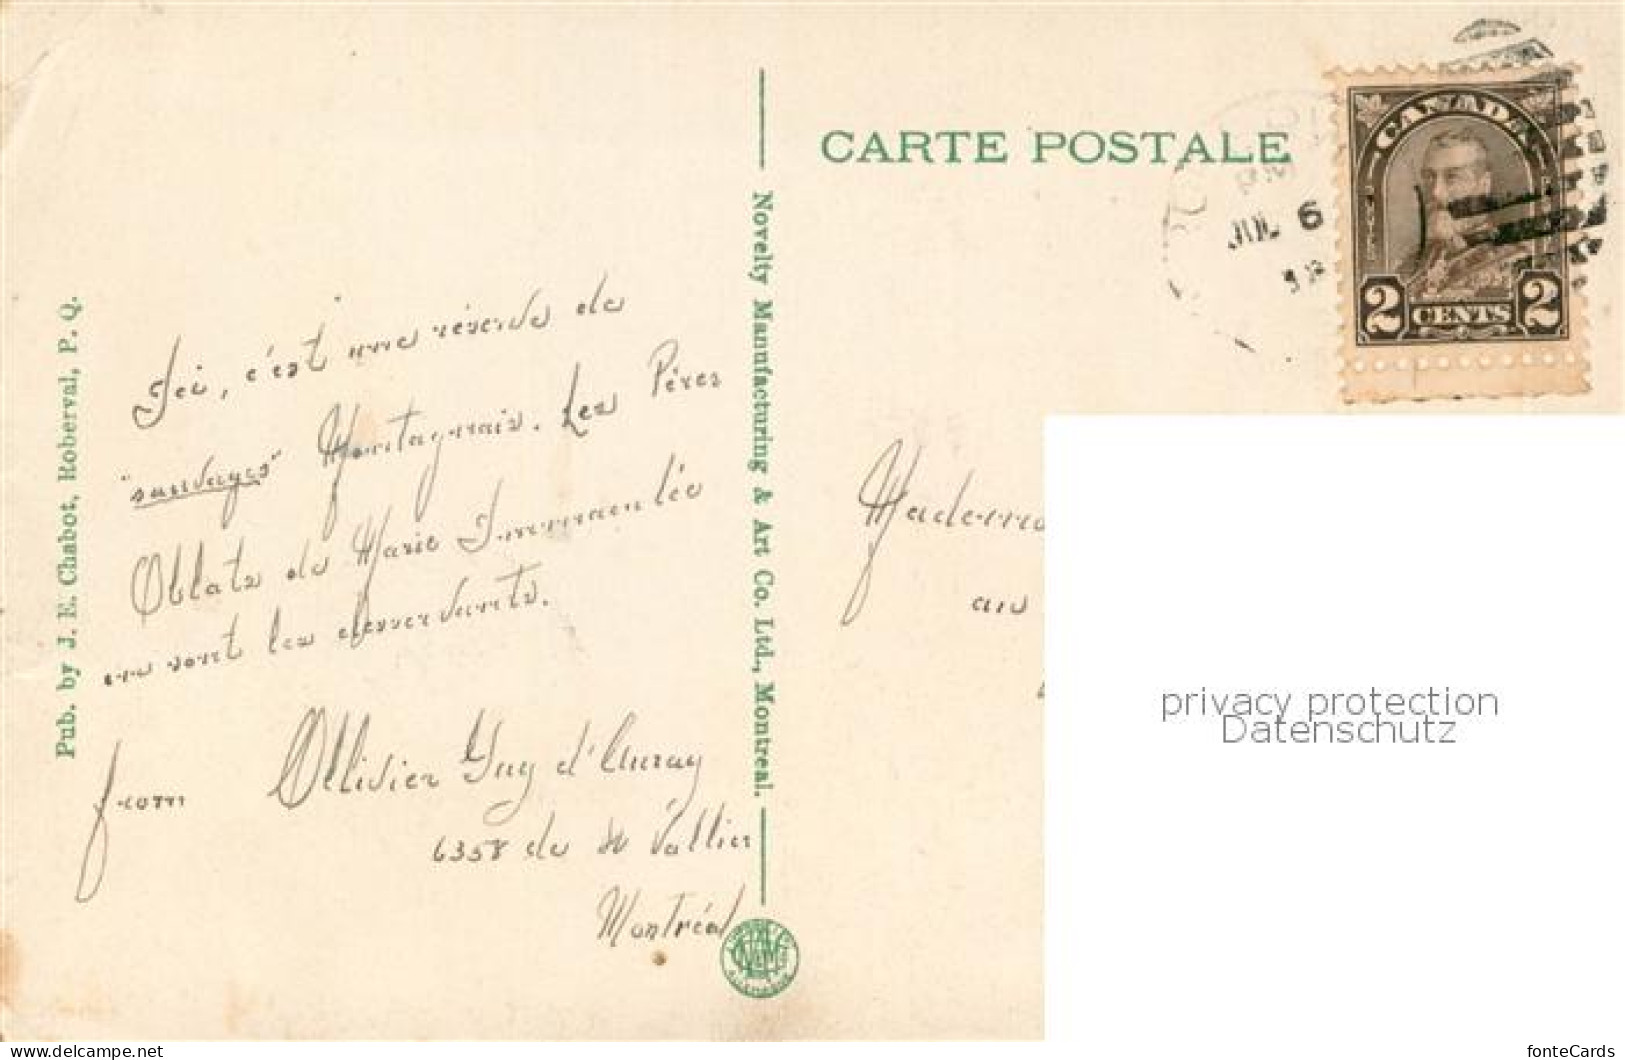 Pub. by J. E. Chabot, Roberval, P. Q.
Ici, c'est une réserve de
"sauvages" Montagnais. Les Pères
Oblats de Marie Immaculée
en sont les desservants.
from Ollivier Guy d'Auray
6358 de St Vallier
Montréal
Novelty Manufacturing & Art Co. Ltd., Montreal.
CARTE POSTALE
JUL 6
CANADA
2 CENTS 2
Mademo
au
privacy protection
Datenschutz
https://www.ansichtskarten-center.de/
fonteCards